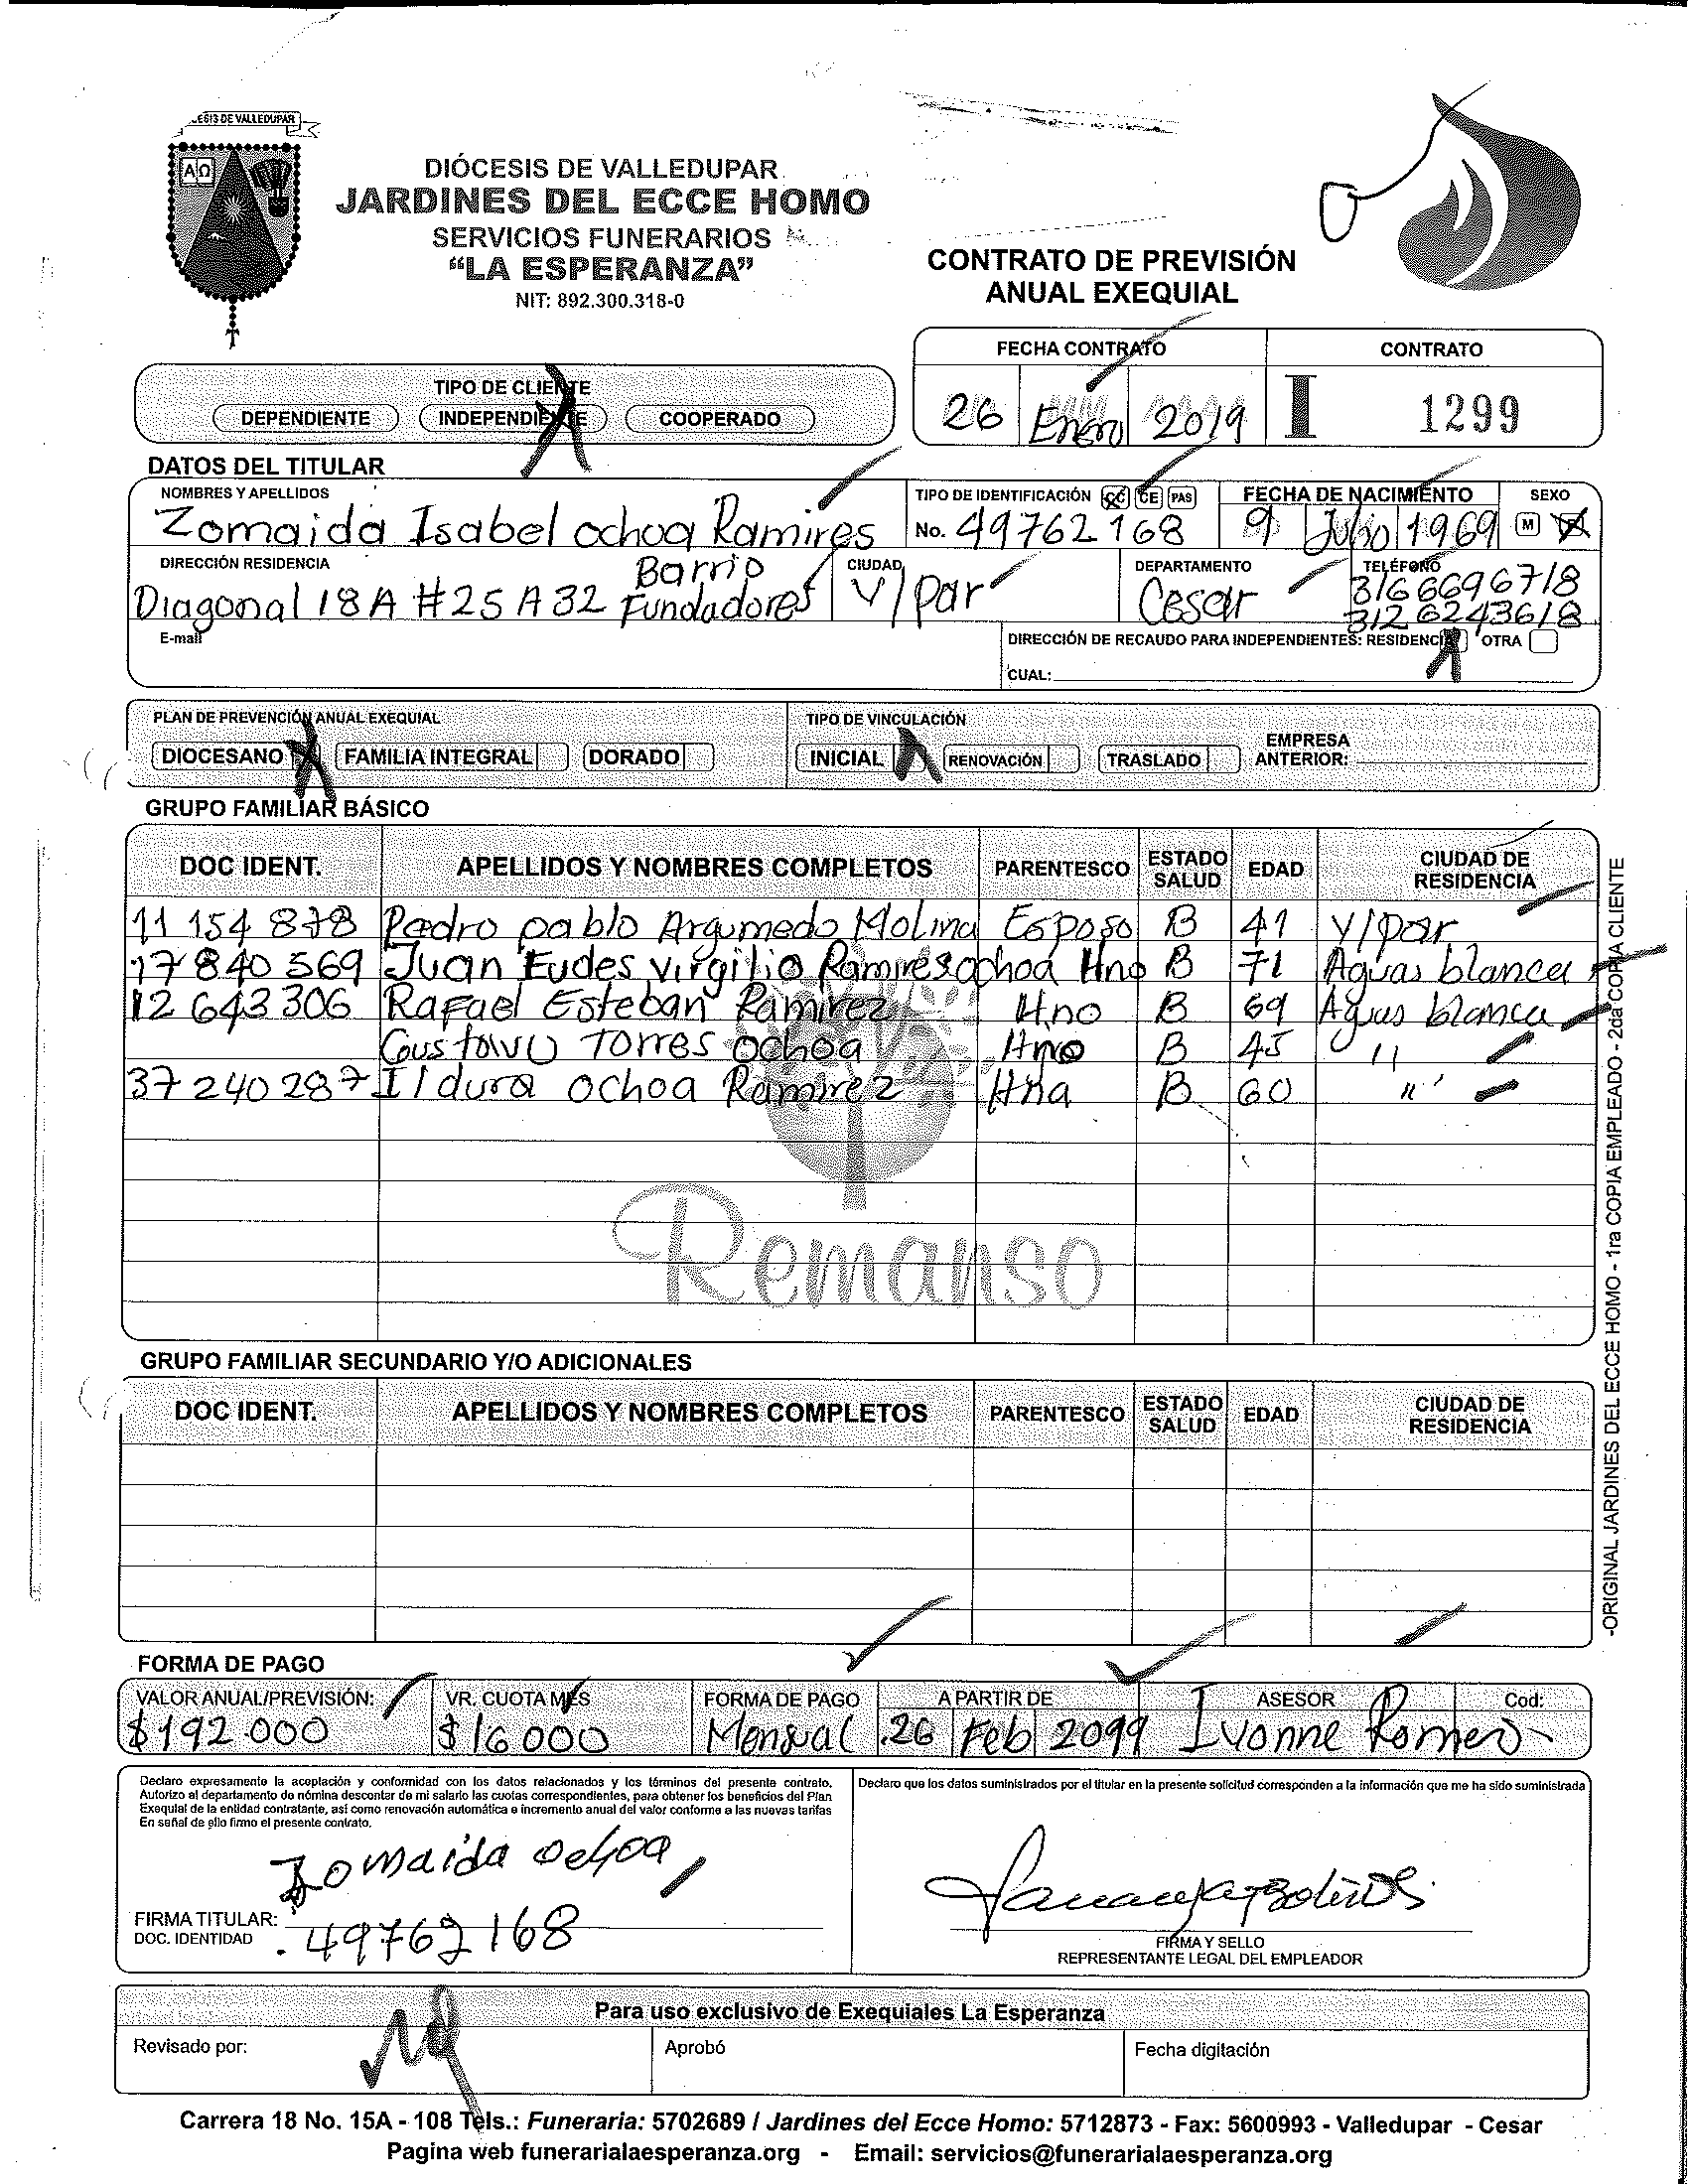 DIÓCESIS DE VALLEDUPAR
JARDINES DEL ECCE HOMO
SERVICIOS FUNERARIOS
“LA ESPERANZA”
NIT: 892.300.318-0
CONTRATO DE PREVISIÓN
ANUAL EXEQUIAL
FECHA CONTRATO CONTRATO
26 Enero 2019 I 1299
TIPO DE CLIENTE
DEPENDIENTE INDEPENDIENTE X COOPERADO
DATOS DEL TITULAR
NOMBRES Y APELLIDOS TIPO DE IDENTIFICACIÓN CC CE PAS FECHA DE NACIMIENTO SEXO
Zomaida Isabel ochoa Ramires No. 49762168 9 Julio 1969 M
DIRECCIÓN RESIDENCIA CIUDAD DEPARTAMENTO TELÉFONO
Diagonal 18A #25A32 Barrio Fundadores V/par Cesar 3166696718
3126243618
E-mail DIRECCIÓN DE RECAUDO PARA INDEPENDIENTES: RESIDENCIA X OTRA
CUAL:
PLAN DE PREVENCIÓN ANUAL EXEQUIAL TIPO DE VINCULACIÓN
DIOCESANO X FAMILIA INTEGRAL DORADO INICIAL X RENOVACIÓN TRASLADO EMPRESA ANTERIOR:
GRUPO FAMILIAR BÁSICO
DOC IDENT. APELLIDOS Y NOMBRES COMPLETOS PARENTESCO ESTADO SALUD EDAD CIUDAD DE RESIDENCIA
11 154 878 Pedro pablo Argumedo Molina Esposo B 41 V/par
17 840 569 Juan Eudes virgilio Ramires ochoa Hno B 71 Aguas blanca
12 643 306 Rafael Esteban Ramirez Hno B 69 Aguas blanca
Gustavo Torres ochoa Hno B 45 "
37 240 287 Ildura ochoa Ramirez Hna B 60 "
Remanso
GRUPO FAMILIAR SECUNDARIO Y/O ADICIONALES
DOC IDENT. APELLIDOS Y NOMBRES COMPLETOS PARENTESCO ESTADO SALUD EDAD CIUDAD DE RESIDENCIA
-ORIGINAL JARDINES DEL ECCE HOMO - 1ra COPIA EMPLEADO - 2da COPIA CLIENTE
FORMA DE PAGO
VALOR ANUAL/PREVISIÓN: VR. CUOTA MES FORMA DE PAGO A PARTIR DE ASESOR Cod:
$192.000 $16000 Mensual 26 Feb 2019 Ivonne Romero
Declaro expresamente la aceptación y conformidad con los datos relacionados y los términos del presente contrato.
Autorizo al departamento de nómina descontar de mi salario las cuotas correspondientes, para obtener los beneficios del Plan
Exequial de la entidad contratante, así como renovación automática e incremento anual del valor conforme a las nuevas tarifas
En señal de ello firmo el presente contrato.
Declaro que los datos suministrados por el titular en la presente solicitud corresponden a la información que me ha sido suministrada
Zomaida ochoa
FIRMA TITULAR:
DOC. IDENTIDAD 49762168
FIRMA Y SELLO
REPRESENTANTE LEGAL DEL EMPLEADOR
Para uso exclusivo de Exequiales La Esperanza
Revisado por: Aprobó Fecha digitación
Carrera 18 No. 15A - 108 Tels.: Funeraria: 5702689 / Jardines del Ecce Homo: 5712873 - Fax: 5600993 - Valledupar - Cesar
Pagina web funerarialaesperanza.org - Email: servicios@funerarialaesperanza.org